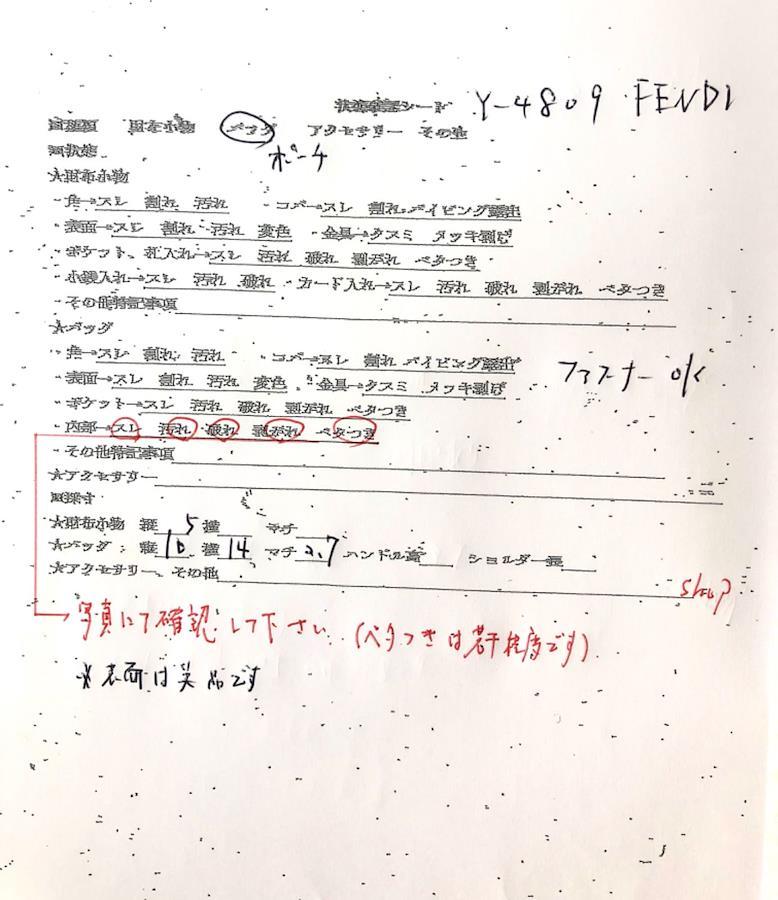 状態確認シート Y-4809 FENDI
財布小物 バッグ アクセサリー その他
ポーチ
状態
★財布小物
・角→スレ 割れ 汚れ ・コバ→スレ 割れ パイピング露出
・表面→スレ 割れ 汚れ 変色 ・金具→クスミ メッキ剥げ
・ポケット、札入れ→スレ 汚れ 破れ 剥がれ ベタつき
・小銭入れ→スレ 汚れ 破れ ・カード入れ→スレ 汚れ 破れ 剥がれ ベタつき
・その他特記事項
★バッグ
・角→スレ 割れ 汚れ ・コバ→スレ 割れ パイピング露出
・表面→スレ 割れ 汚れ 変色 ・金具→クスミ メッキ剥げ ファスナー OK
・ポケット→スレ 汚れ 破れ 剥がれ ベタつき
・内部→スレ 汚れ 破れ 剥がれ ベタつき
・その他特記事項
★アクセサリー
採寸
★財布小物 縦 横 マチ
★バッグ: 縦 横14 マチ ハンドル高 ショルダー長
★アクセサリー、その他
写真にて確認して下さい (ベタつきは若干程度です)
★表面は美品です